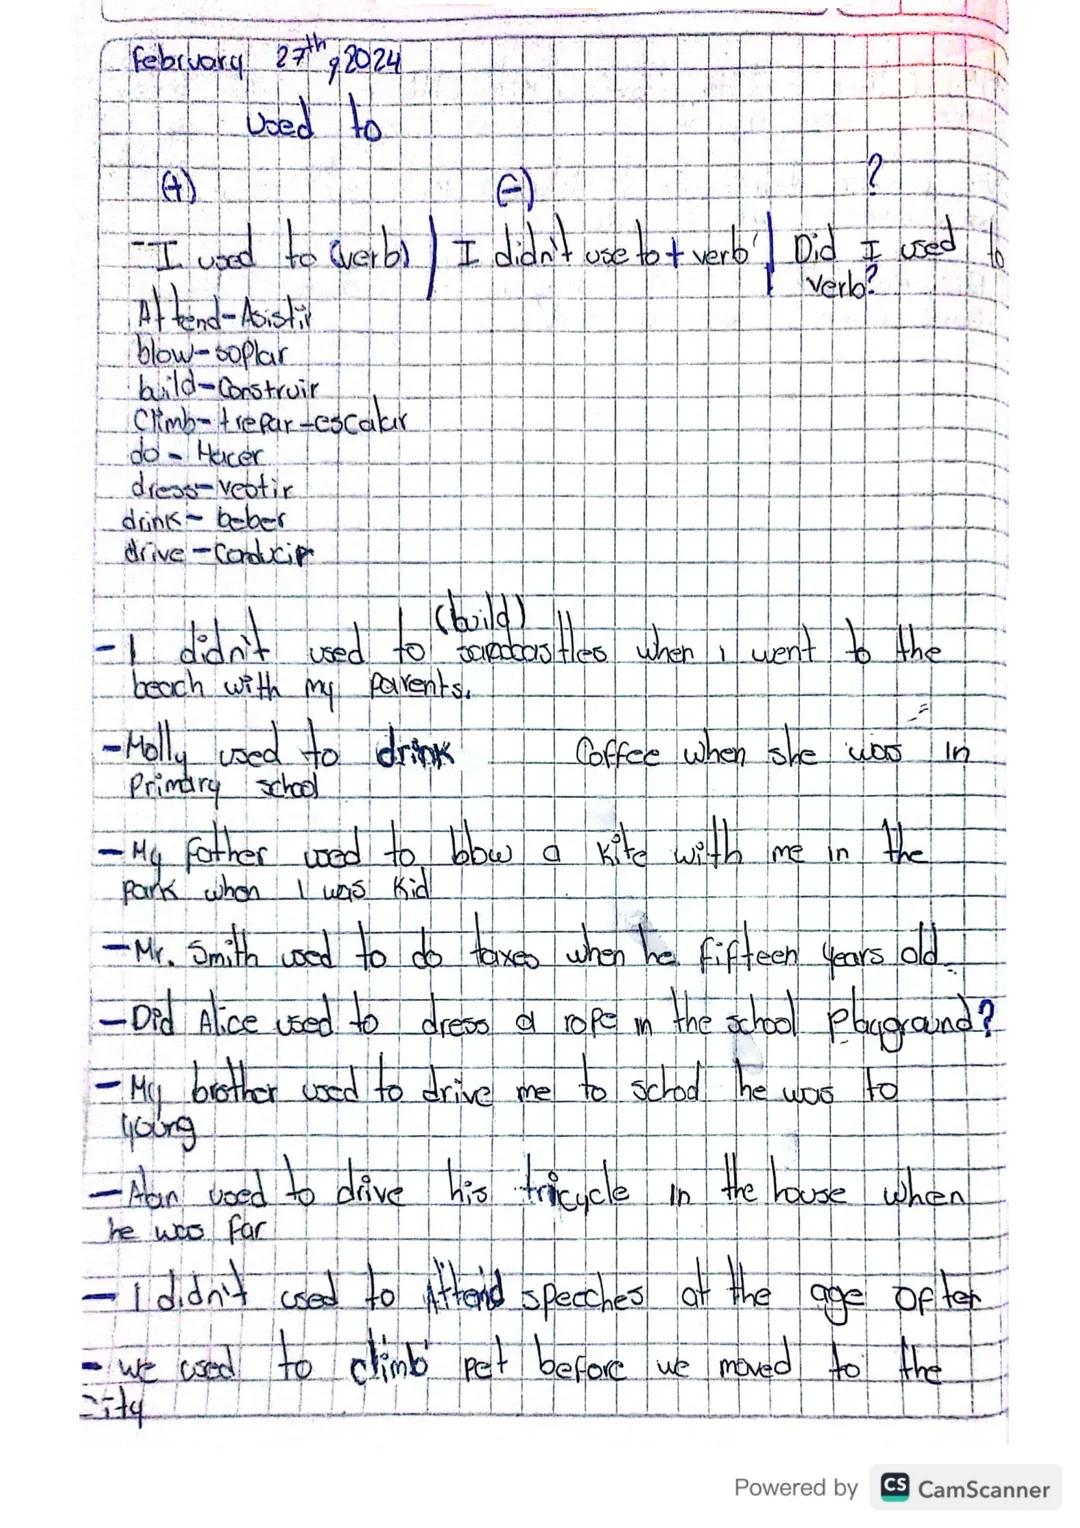 February 27th, 2024
used to
(+) (-) ?
- I used to (verb) / I didn't use to + verb / Did I used to
verb?
Attend-Asistir
blow-soplar
build-Construir
Climb-trepar-escalar
do - Hacer
dress-vestir
drink-beber
drive-Conducir
(build)
- I didn't used to sandcastles when I went to the
beach with my parents.
- Molly used to drink Coffee when she was in
Primary school
- My father used to blow a kite with me in the
park when I was kid
- Mr. Smith used to do taxes when he fifteen years old.
- Did Alice used to dress a rope in the school playground?
- My brother used to drive me to school he was to
young
- Alan used to drive his tricycle in the house when
he was far
- I didn't used to Attend speeches at the age of ten
- we used to climb pet before we moved to the
city
Powered by CS CamScanner